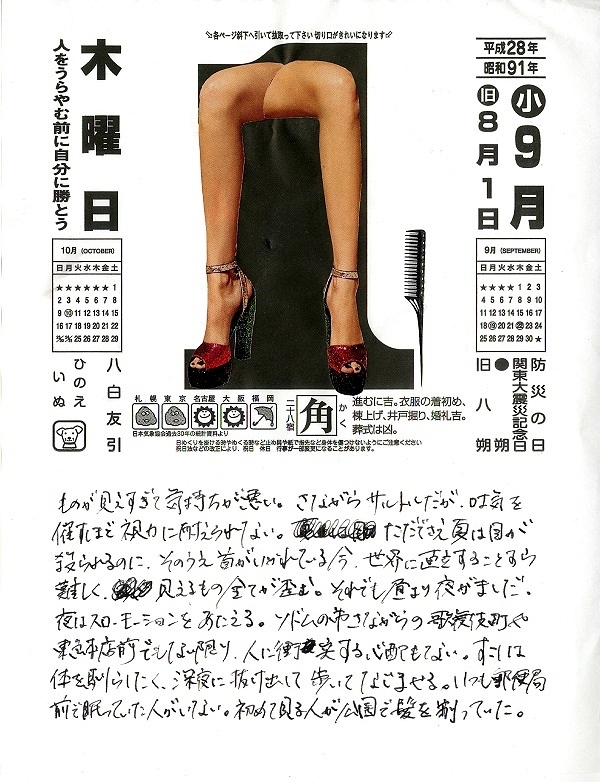 各ページ斜下へ引いて抜取って下さい 切り口がきれいになります
平成28年
昭和91年
小 9月
旧 8月1日
木曜日
人をうらやむ前に自分に勝とう
10月 (OCTOBER)
日 月 火 水 木 金 土
★ ★ ★ ★ ★ ★ 1
2 3 4 5 6 7 8
9 10 11 12 13 14 15
16 17 18 19 20 21 22
23/30 24/31 25 26 27 28 29
9月 (SEPTEMBER)
日 月 火 水 木 金 土
★ ★ ★ ★ 1 2 3
4 5 6 7 8 9 10
11 12 13 14 15 16 17
18 19 20 21 22 23 24
25 26 27 28 29 30 ★
防災の日
関東大震災記念日
●朔
旧八朔
八白友引
ひのえ
いぬ
札幌 東京 名古屋 大阪 福岡
日本気象協会過去30年の統計資料より
二十八宿
角 かく
進むに吉。衣服の着初め、
棟上げ、井戸掘り、婚礼吉。
葬式は凶。
日めくりを掛ける時やめくる時など止め具や紙で指先など身体を傷つけないようにご注意ください
祝日法などの改正により、祝日 休日 行事が一部変更になることがあります。
ものが見えすぎて気持ちが悪い。さながらサルトルだが、吐気を
催すほど視力に耐えられてない。ただでさえ夏は目が
殺られるのに、そのうえ首がいかれている今、世界に直立することすら
難しく、見えるもの全てが歪む。それでも昼より夜がましだ。
夜はスローモーションをあたえる。ソドムの市さながらの歌舞伎町や
東急本店前でもない限り、人に衝突する心配もない。すこしは
体を馴らしたく、深夜に抜け出して歩いてなじませる。いつも郵便局
前で眠っていた人がいない。初めて見る人が公園で髪を剃っていた。